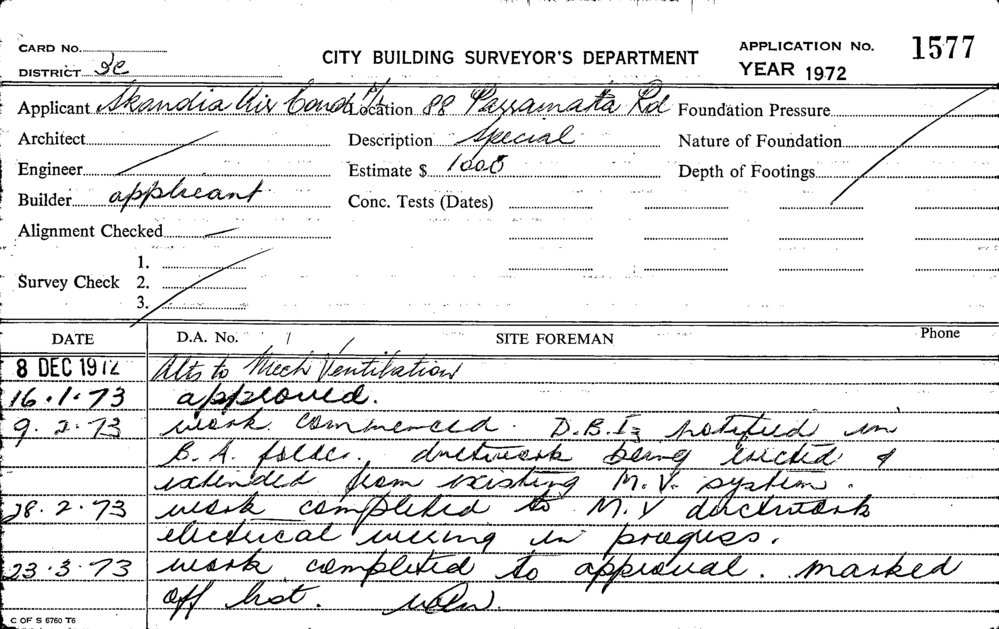 CARD No.
DISTRICT 3C
CITY BUILDING SURVEYOR'S DEPARTMENT
APPLICATION No. 1577
YEAR 1972
Applicant Skandia Air Cond P/L Location 88 Parramatta Rd Foundation Pressure
Architect Description Special Nature of Foundation
Engineer Estimate $ 1000 Depth of Footings
Builder applicant Conc. Tests (Dates)
Alignment Checked
1.
Survey Check 2.
3.
DATE D.A. No. / SITE FOREMAN Phone
8 DEC 1972 Alts to Mech Ventilation
16.1.73 approved.
9.2.73 work commenced. D.B.I. notified in
B.A. folder. ductwork being erected &
extended from existing M.V. system.
28.2.73 work completed to M.V ductwork
electrical wiring in progress.
23.3.73 work completed to approval. marked
off list.
C OF S 6760 T6